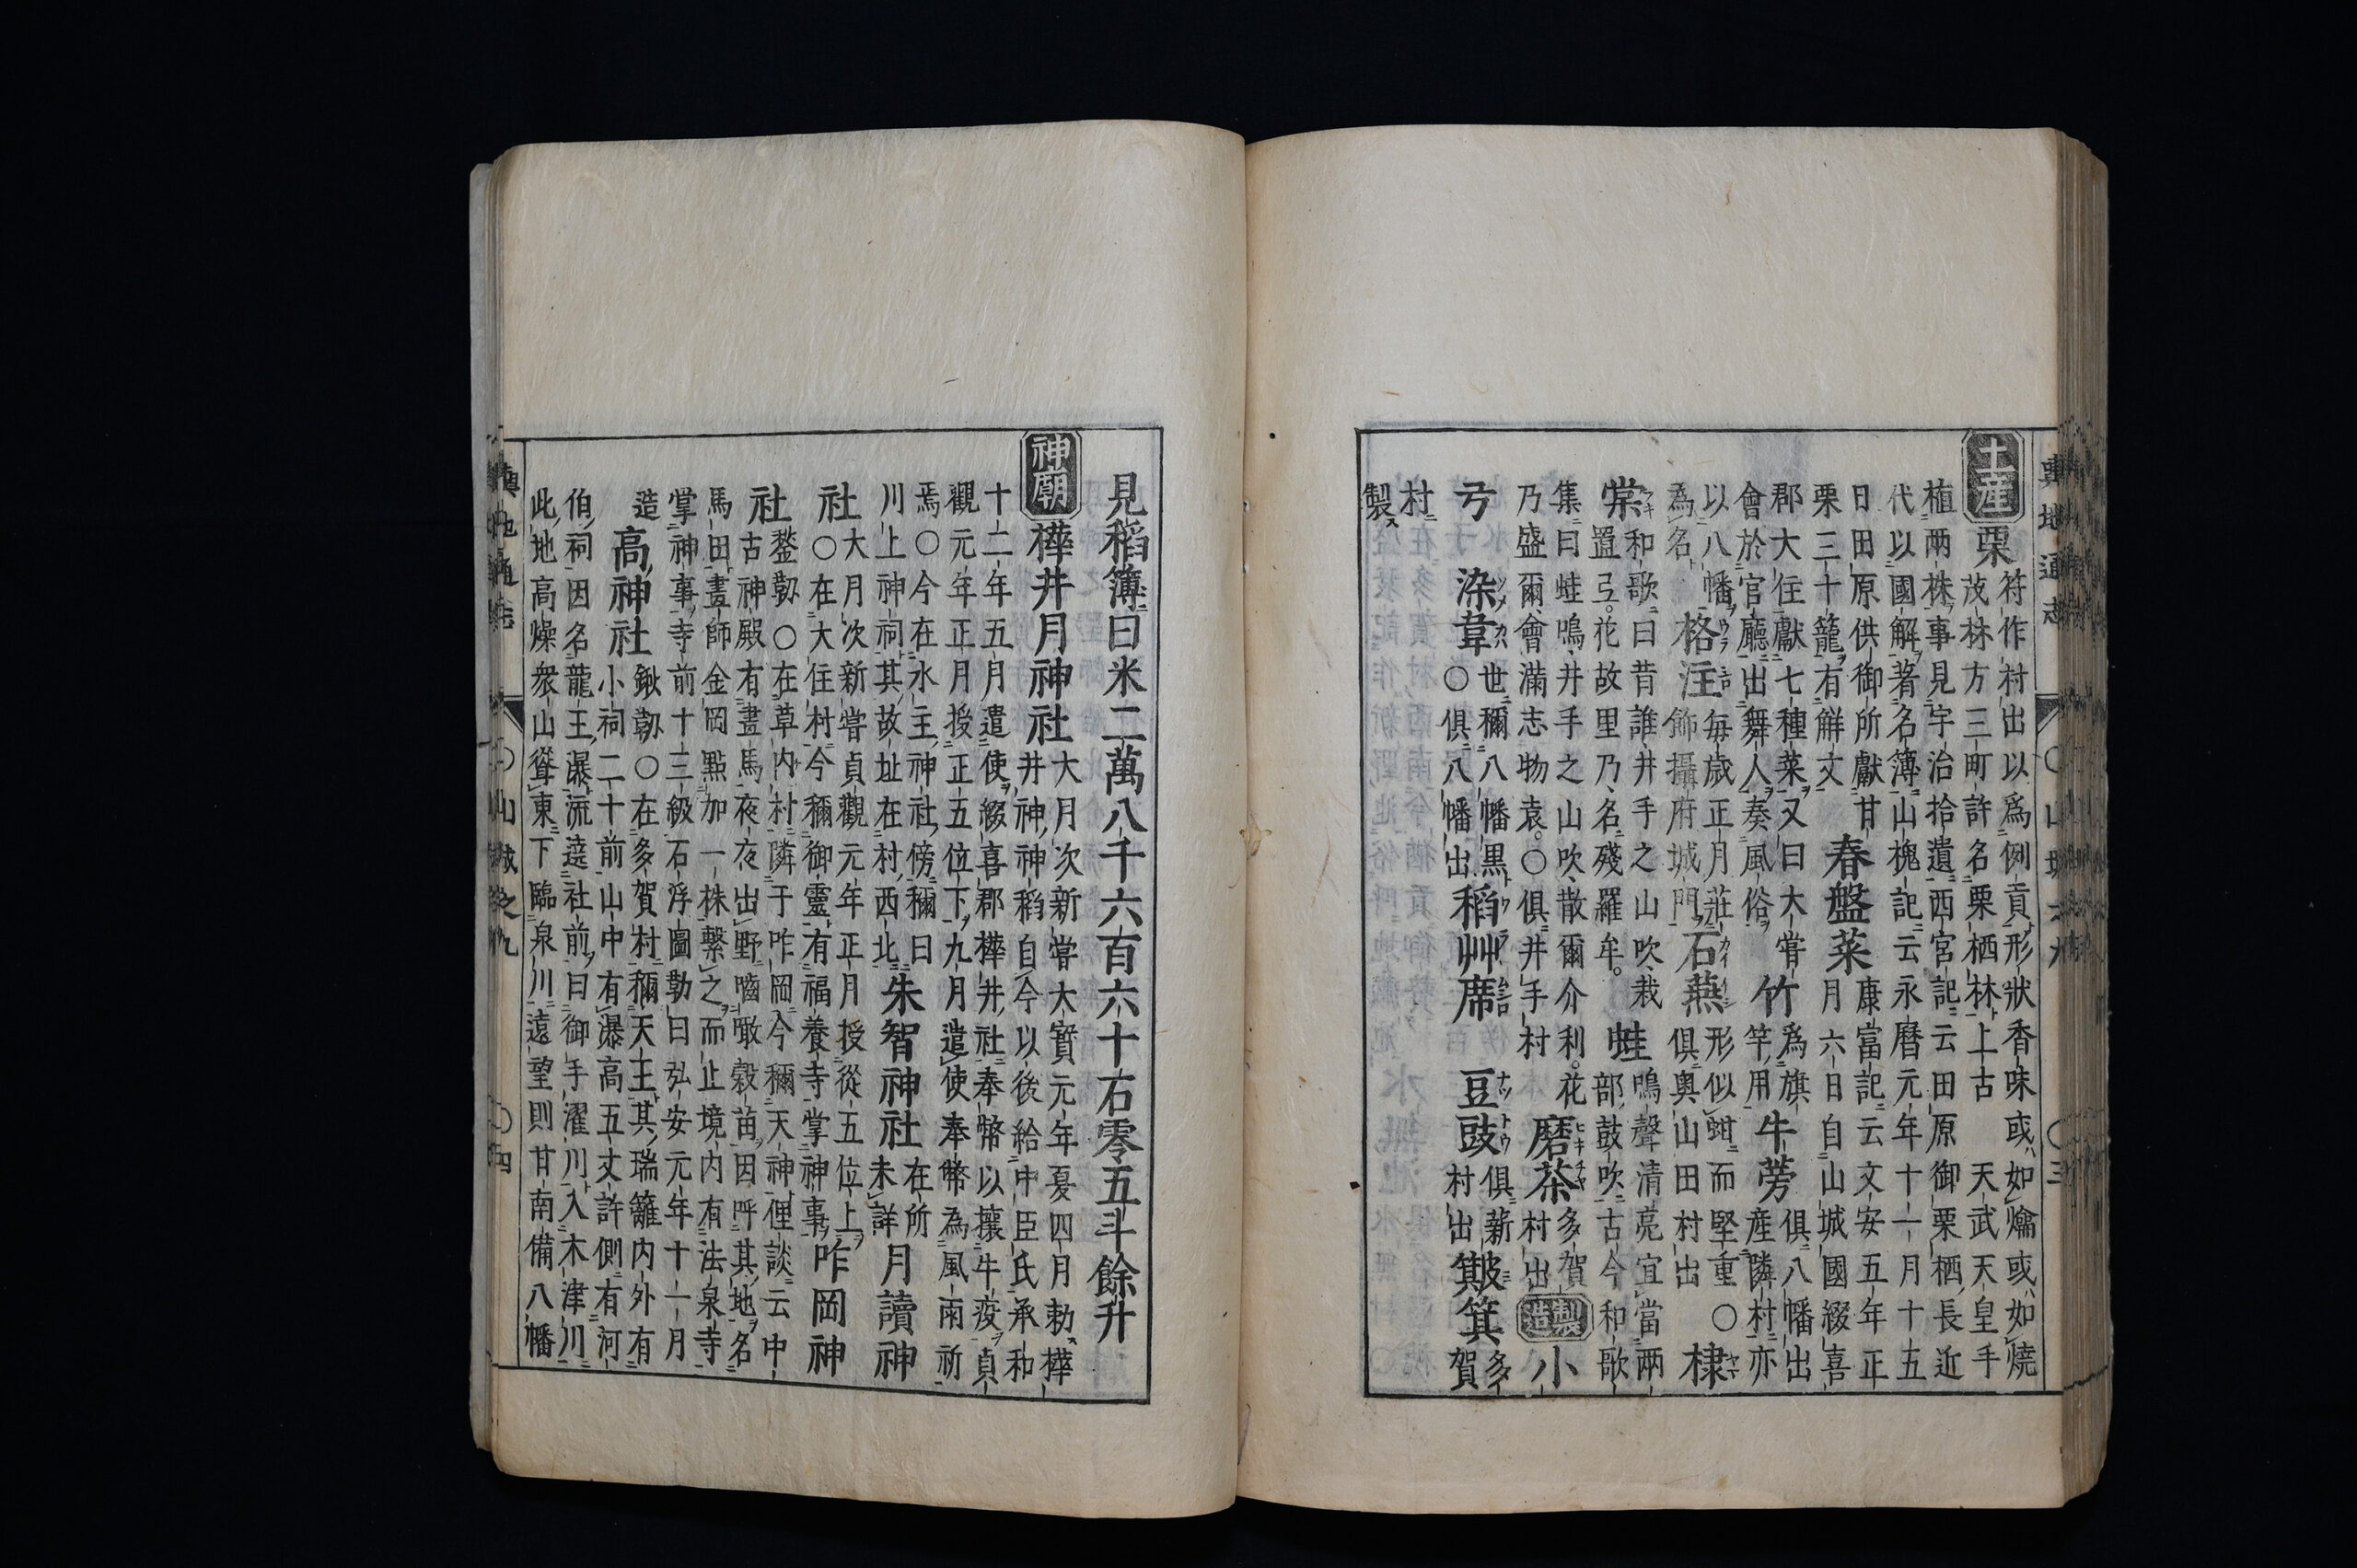 輿地通志
〇山城之九
〇三
土産
栗
符作村出以爲例貢形狀香味或如爚或如燒
茂林方三町許名栗栖林上古天武天皇手
植兩株事見宇治拾遺西宮記云田原御栗栖長近
代以國解著名簿山槐記云永曆元年十一月十五
日田原供御所獻甘
栗三十籠有解文
春盤菜
康富記云文安五年正
月六日自山城國綴喜
郡大住獻七種菜又曰大嘗
會於官廳出舞人奏風俗
竹
爲旗
竿用
牛蒡
俱八幡出
産隣村亦
以八幡
為名
格注
每歲正月莊
飾攝府城門
石燕
形似蚶而堅重〇
俱奧山田村出
棣
棠
和歌曰昔誰井手之山吹栽
置弖花故里乃名殘羅牟
蛙
鳴聲清亮宜當兩
部鼓吹古今和歌
集曰蛙鳴井手之山吹散爾介利花
乃盛爾會滿志物袁〇俱井手村
磨茶
多賀
村出
製造
小
弓
染韋
世稱八幡黒
〇俱八幡出
稻艸席
豆豉
俱薪
村出
皷箕
多賀
村
製
見稻簿曰米二萬八千六百六十石零五斗餘升
神廟
樺井月神社
大月次新嘗大寶元年夏四月勅樺
井神神稻自今以後給中臣氏承和
十二年五月遣使綴喜郡樺井社奉幣以攘牛疫貞
觀元年正月授正五位下九月遣使奉幣為風雨祈
焉〇今在水主神社傍稱曰
川上神祠其故址在村西北
朱智神社
在所
未詳
月讀神
社
大月次新嘗貞觀元年正月授從五位上
〇在大住村今稱御靈有福養寺掌神事
咋岡神
社
鍫靱〇在草内村隣于咋岡今稱天神俚談云中
古神殿有畫馬夜夜出野嚙噉穀苗因呼其地名
馬田畫師金岡點加一株繫之而止境内有法泉寺
掌神事寺前十三級石浮圖勒曰弘安元年十一月
造
高神社
鍬靱〇在多賀村稱天王其瑞籬内外有
小祠二十前山中有瀑高五丈許側有河
伯祠因名龍王瀑流遶社前曰御手濯川入木津川
此地高燥衆山聳東下臨泉川遠望則甘南備八幡
輿地通志
〇山城之九
〇四